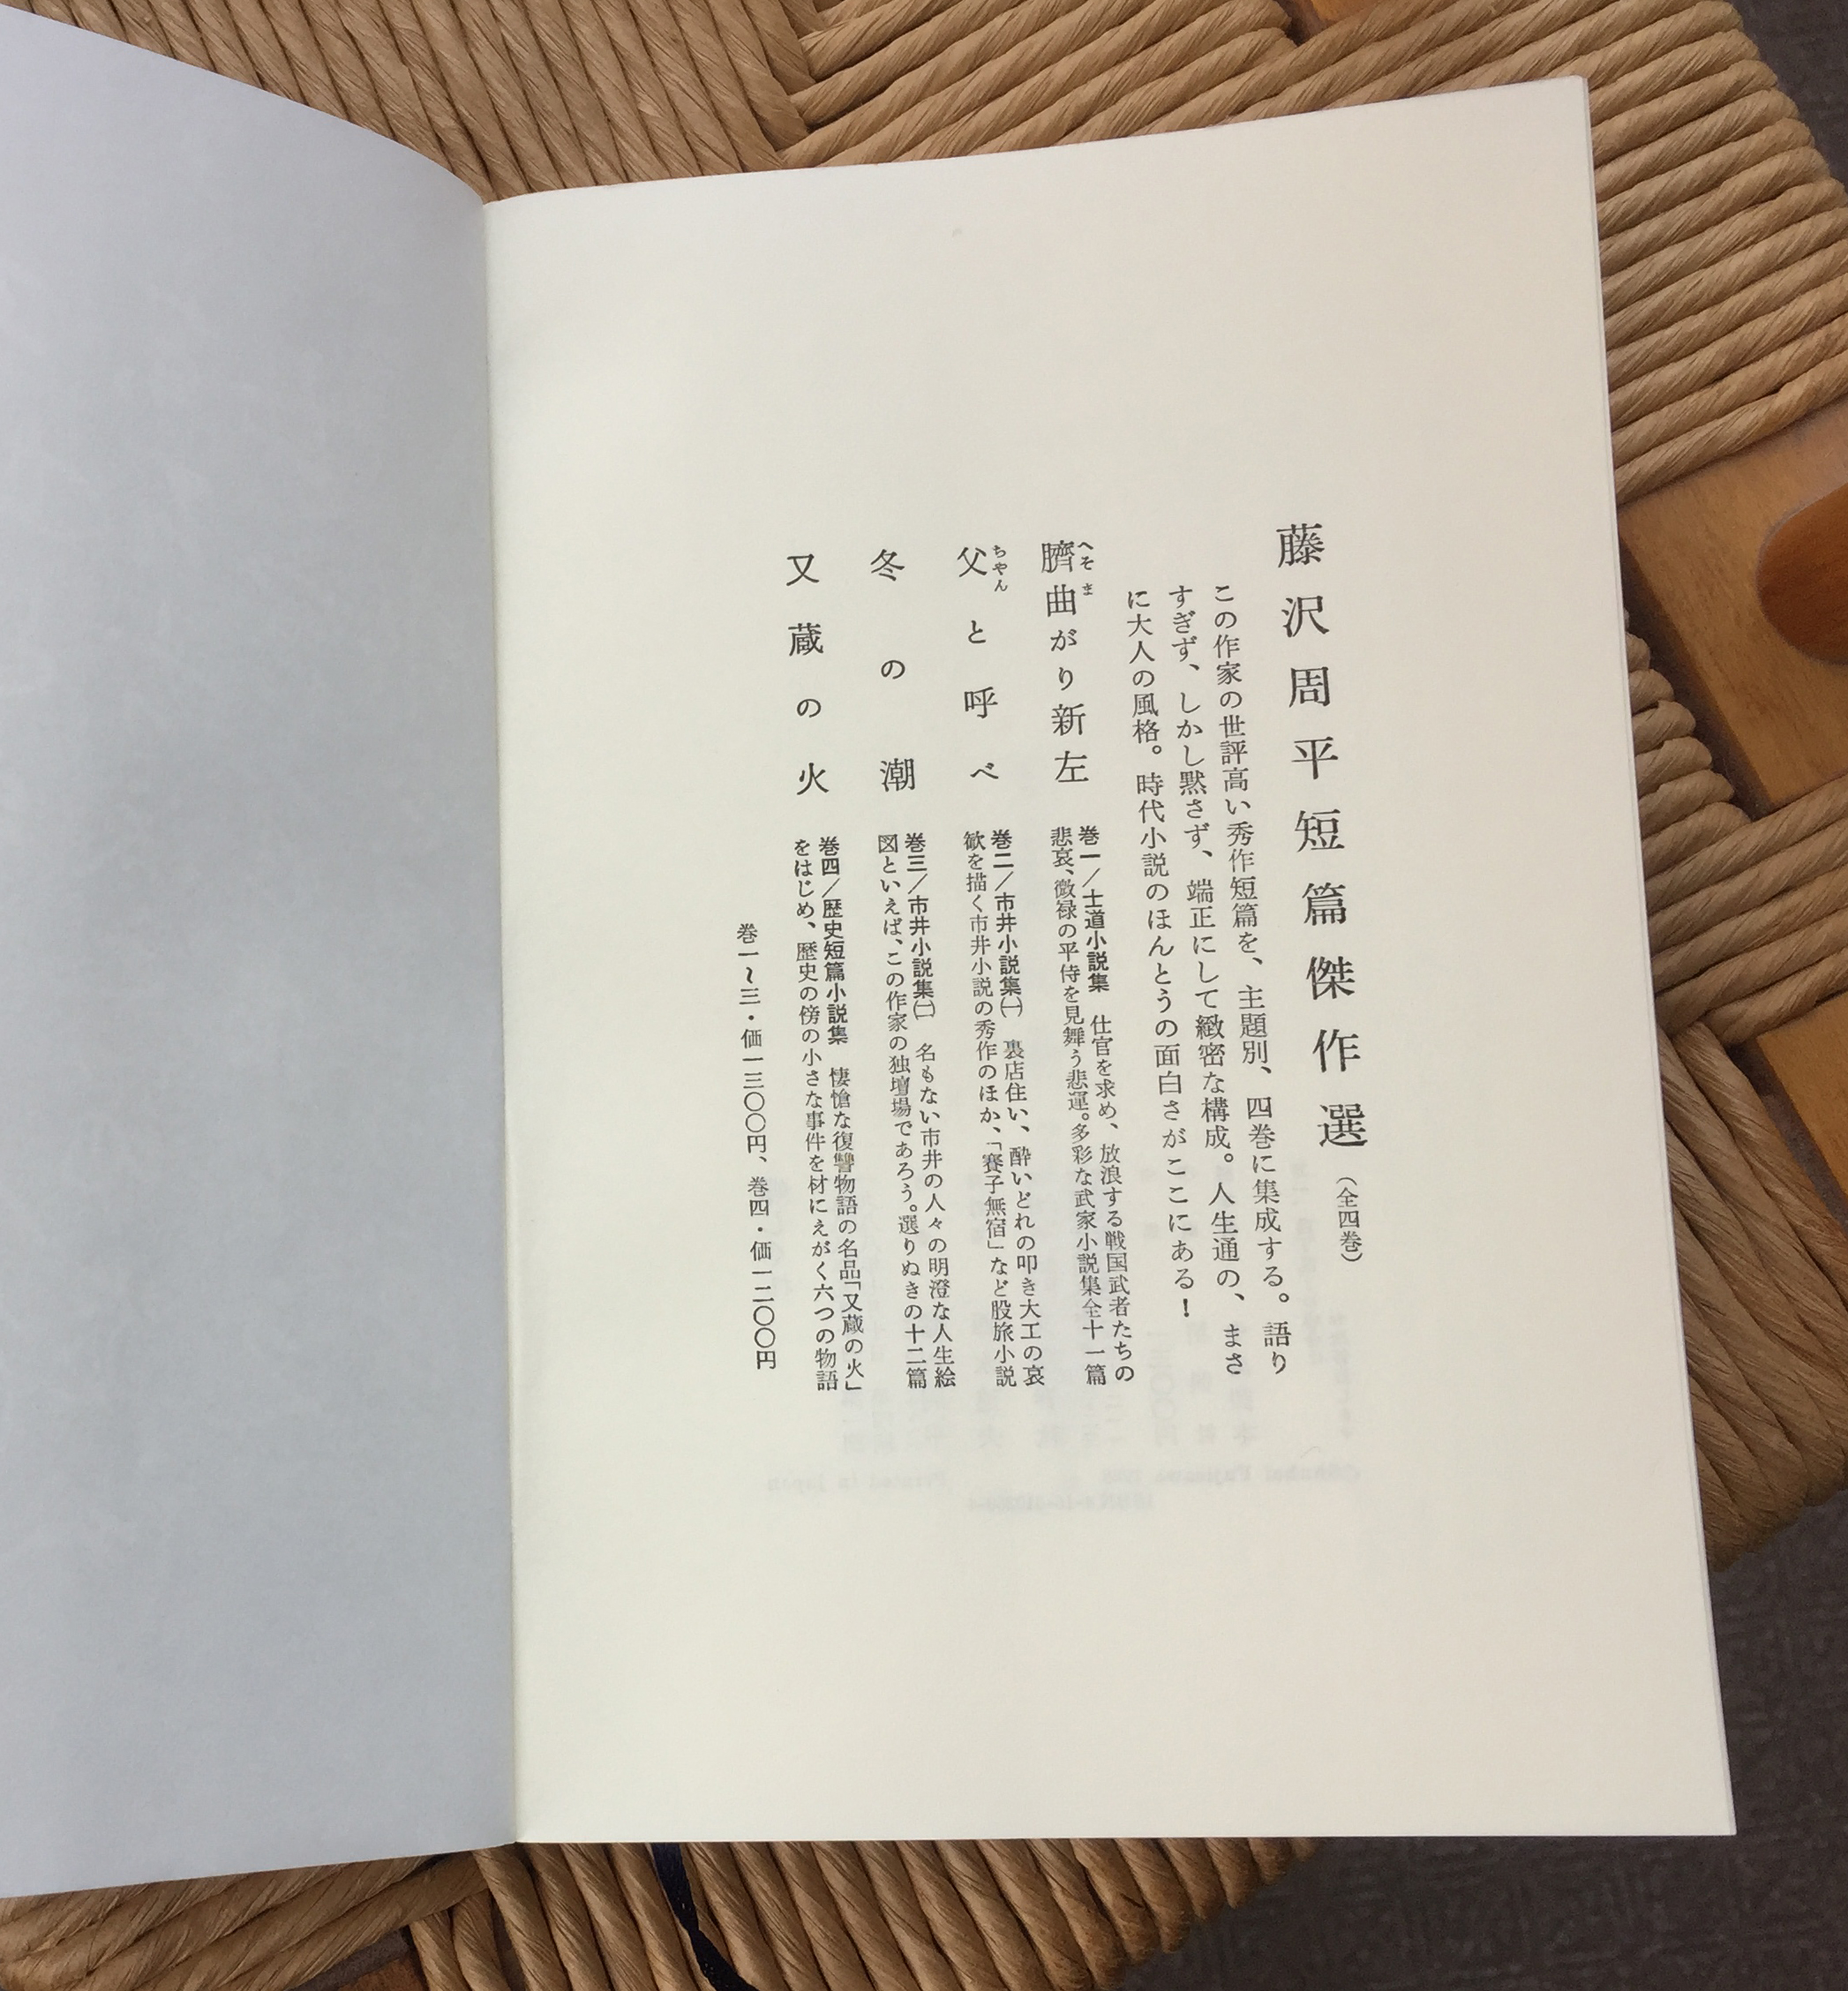 藤沢周平短篇傑作選（全四巻）
この作家の世評高い秀作短篇を、主題別、四巻に集成する。語り
すぎず、しかし黙さず、端正にして緻密な構成。人生通の、まさ
に大人の風格。時代小説のほんとうの面白さがここにある！
臍曲がり新左
へそま
巻一／士道小説集　仕官を求め、放浪する戦国武者たちの
悲哀、微禄の平侍を見舞う悲運。多彩な武家小説集全十一篇
父と呼べ
ちやん
巻二／市井小説集㈠　裏店住い、酔いどれの叩き大工の哀
歓を描く市井小説の秀作のほか、「賽子無宿」など股旅小説
冬の潮
巻三／市井小説集㈡　名もない市井の人々の明澄な人生絵
図といえば、この作家の独壇場であろう。選りぬきの十二篇
又蔵の火
巻四／歴史短篇小説集　悽愴な復讐物語の名品「又蔵の火」
をはじめ、歴史の傍の小さな事件を材にえがく六つの物語
巻一〜三・価一三〇〇円、巻四・価一二〇〇円